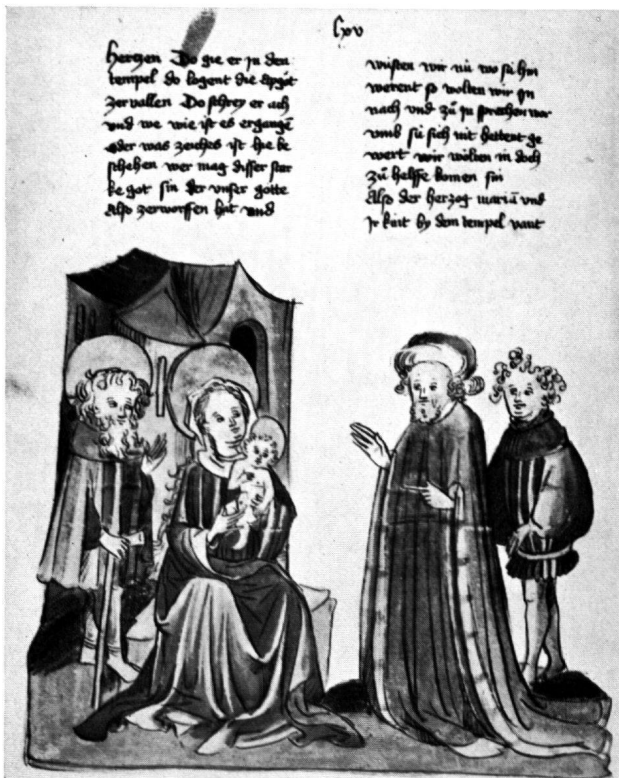 lxv
hertzen Do gie er jn den
tempel do logent die apgöt
zervallen Do schrey er ach
und we wie ist es ergangē
oder was zeiches ist hie be
schehen wer mag disser star
ke got sin der unser gotte
Also zerworffen hat und
wüsten wir nü wo si hin
werent so wolten wir jn
nach und zü jn sprechen war
umb si sich nit hettent ge
wert wir wölten in doch
zü helffe komen sin
Also der herzog mariā vnd
jr kint by dem tempel vant